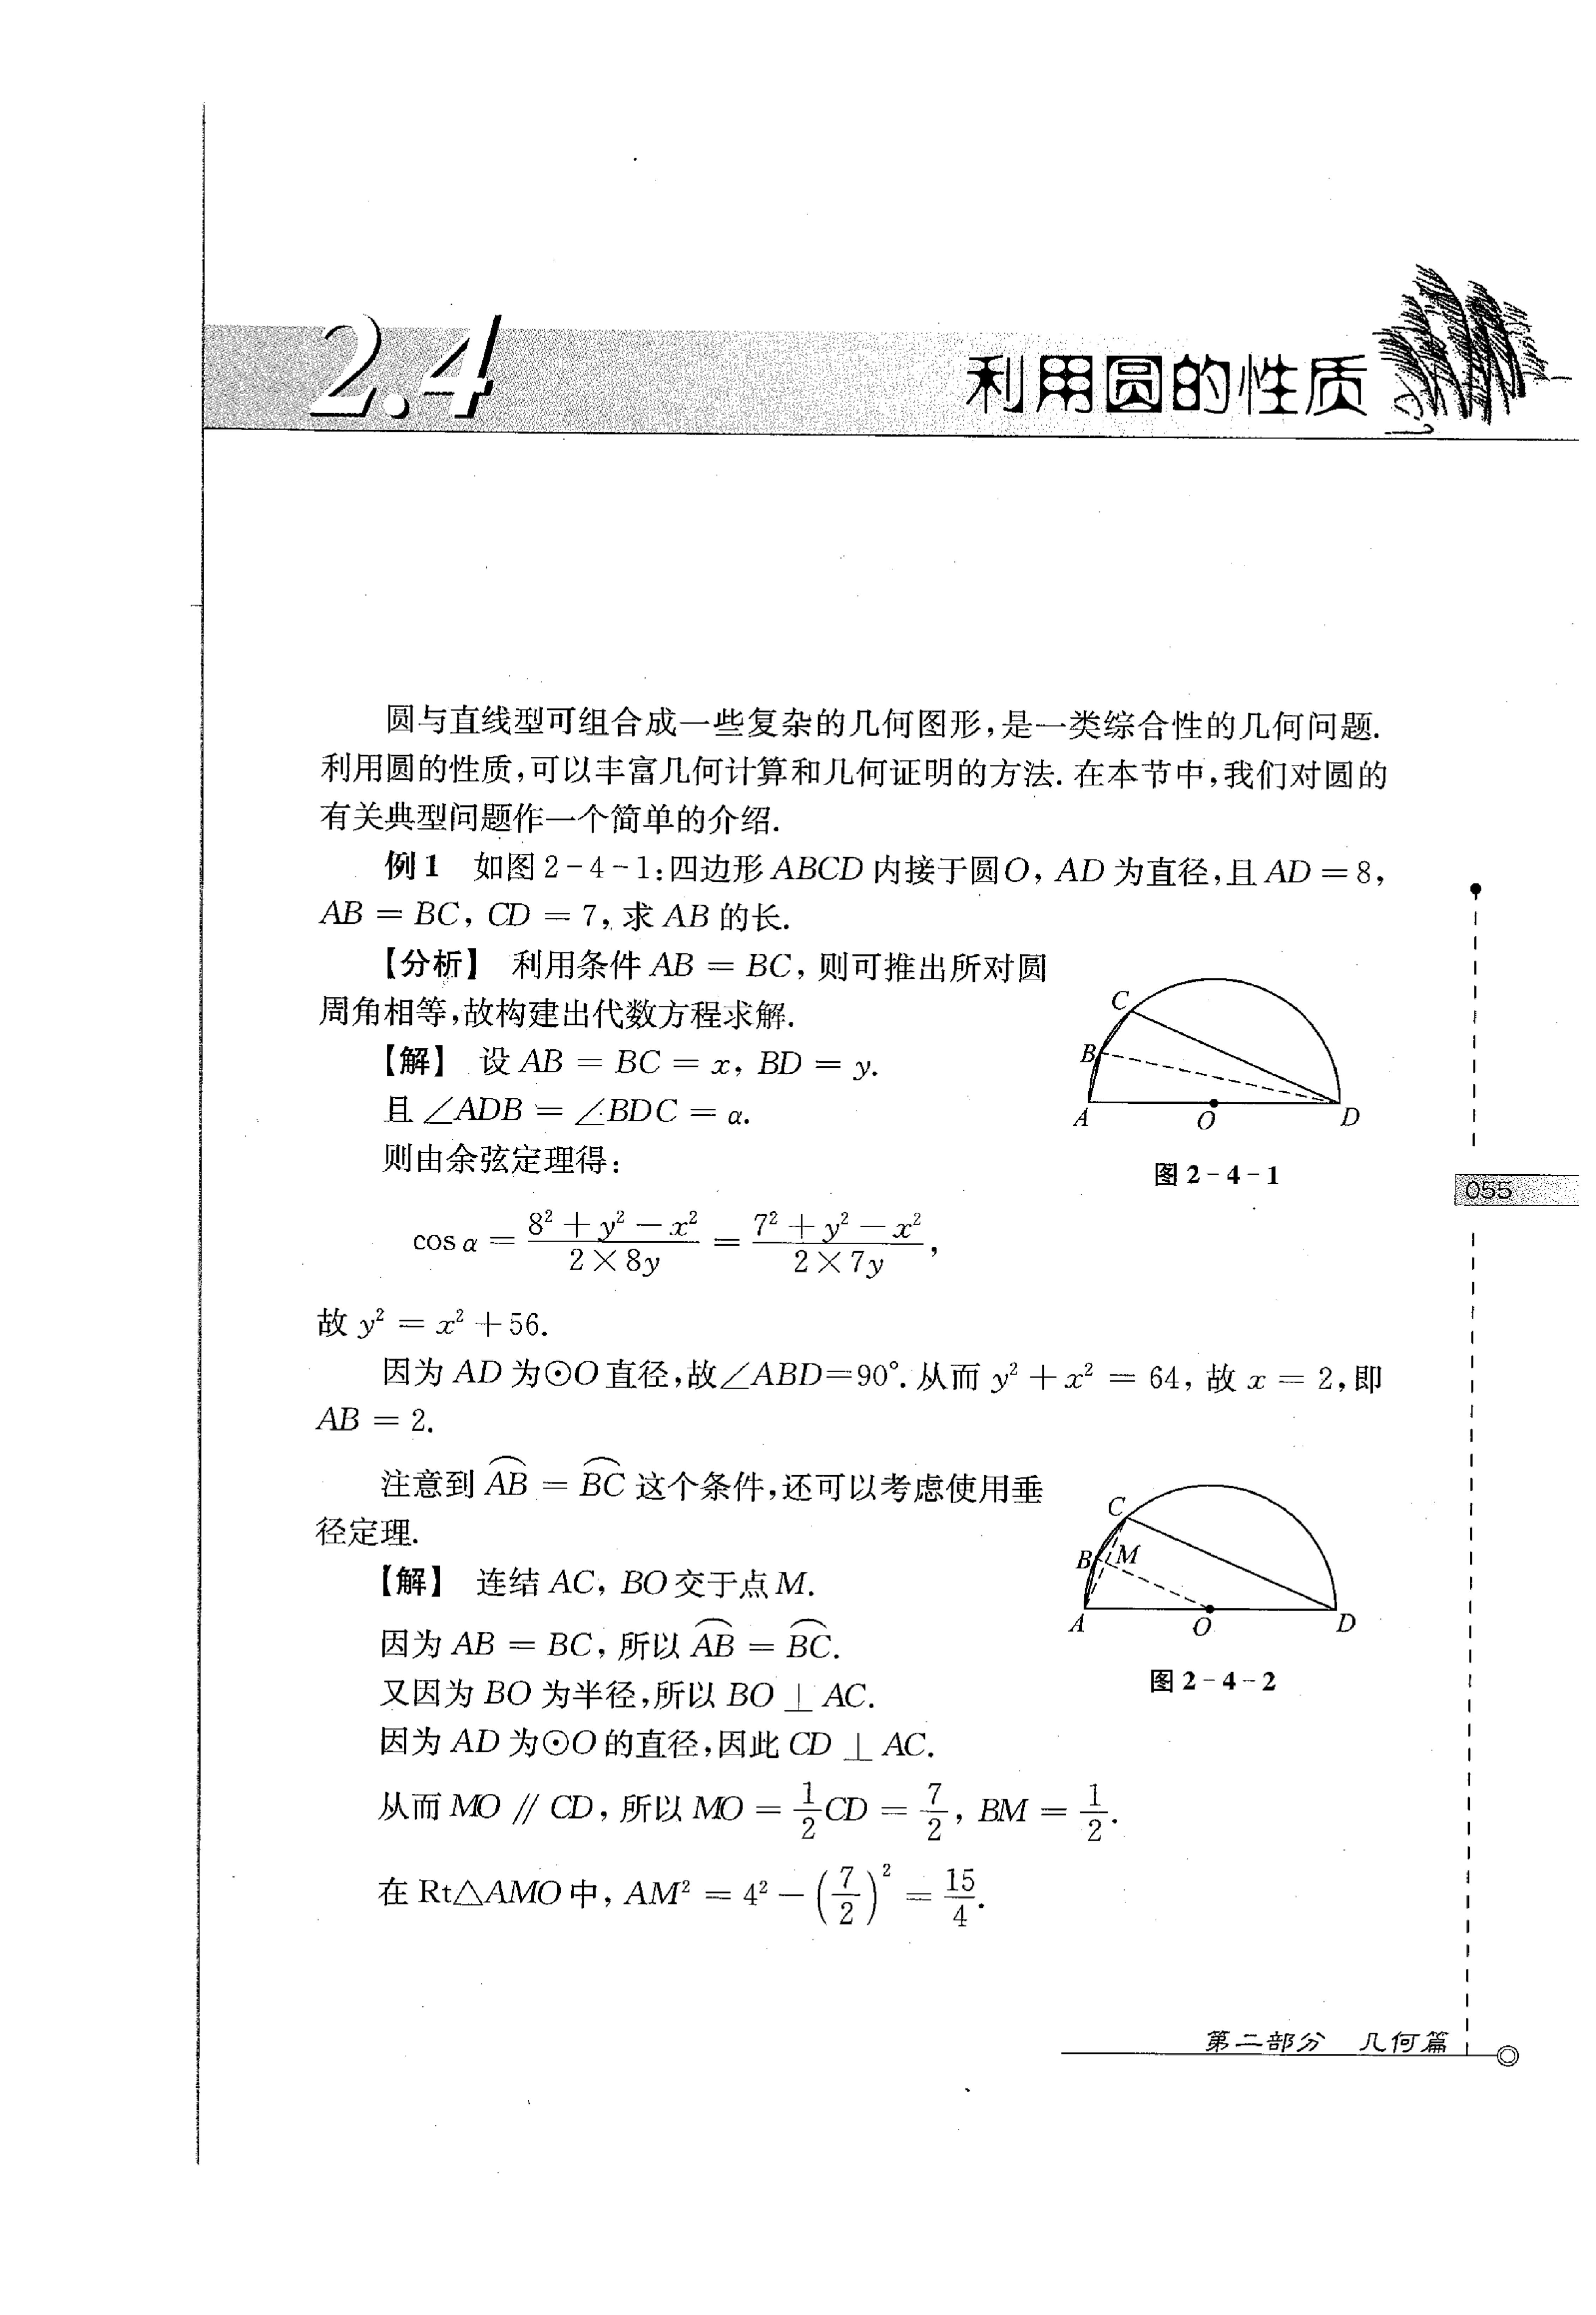 2.4
利用圆的性质
圆与直线型可组合成一些复杂的几何图形,是一类综合性的几何问题.
利用圆的性质,可以丰富几何计算和几何证明的方法. 在本节中,我们对圆的
有关典型问题作一个简单的介绍.
例1 如图2-4-1:四边形ABCD内接于圆O, AD为直径,且AD = 8,
AB = BC, CD = 7, 求AB的长.
【分析】 利用条件AB = BC, 则可推出所对圆
周角相等,故构建出代数方程求解.
【解】 设AB = BC = x, BD = y.
且∠ADB = ∠BDC = α.
则由余弦定理得:
cos α = (8² + y² − x²)/(2×8y) = (7² + y² − x²)/(2×7y),
故y² = x² + 56.
C
B
A
O
D
图2-4-1
055
因为AD为⊙O直径,故∠ABD=90°. 从而y² + x² = 64, 故x = 2, 即
AB = 2.
注意到⌒AB = ⌒BC这个条件,还可以考虑使用垂
径定理.
【解】 连结AC, BO交于点M.
因为AB = BC, 所以⌒AB = ⌒BC.
又因为BO为半径,所以BO ⊥ AC.
因为AD为⊙O的直径,因此CD ⊥ AC.
C
B
M
A
O
D
图2-4-2
从而MO // CD, 所以MO = 1/2 CD = 7/2, BM = 1/2.
在Rt△AMO中, AM² = 4² − (7/2)² = 15/4.
第二部分 几何篇